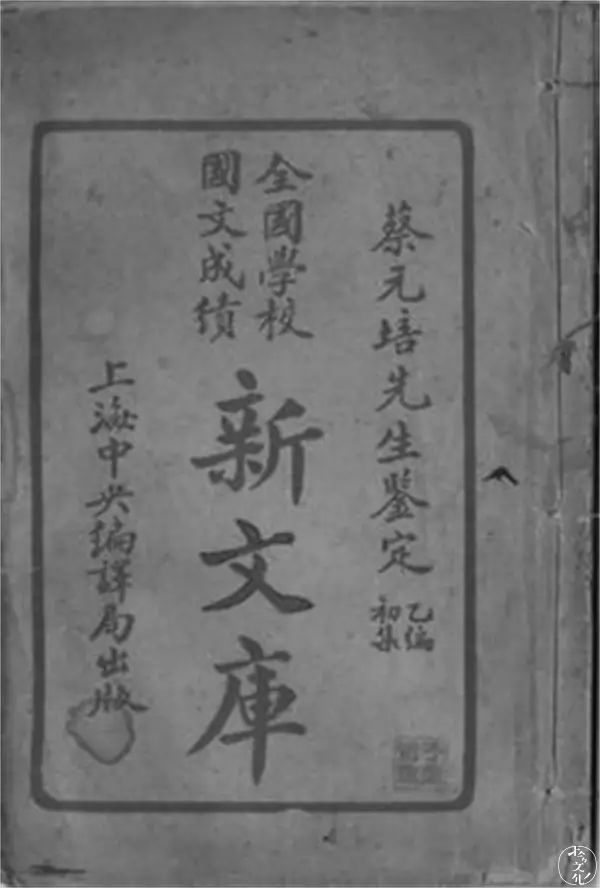 蔡元培先生鑒定
乙編
初集
全國學校
國文成績
新文庫
上海中央編譯局出版